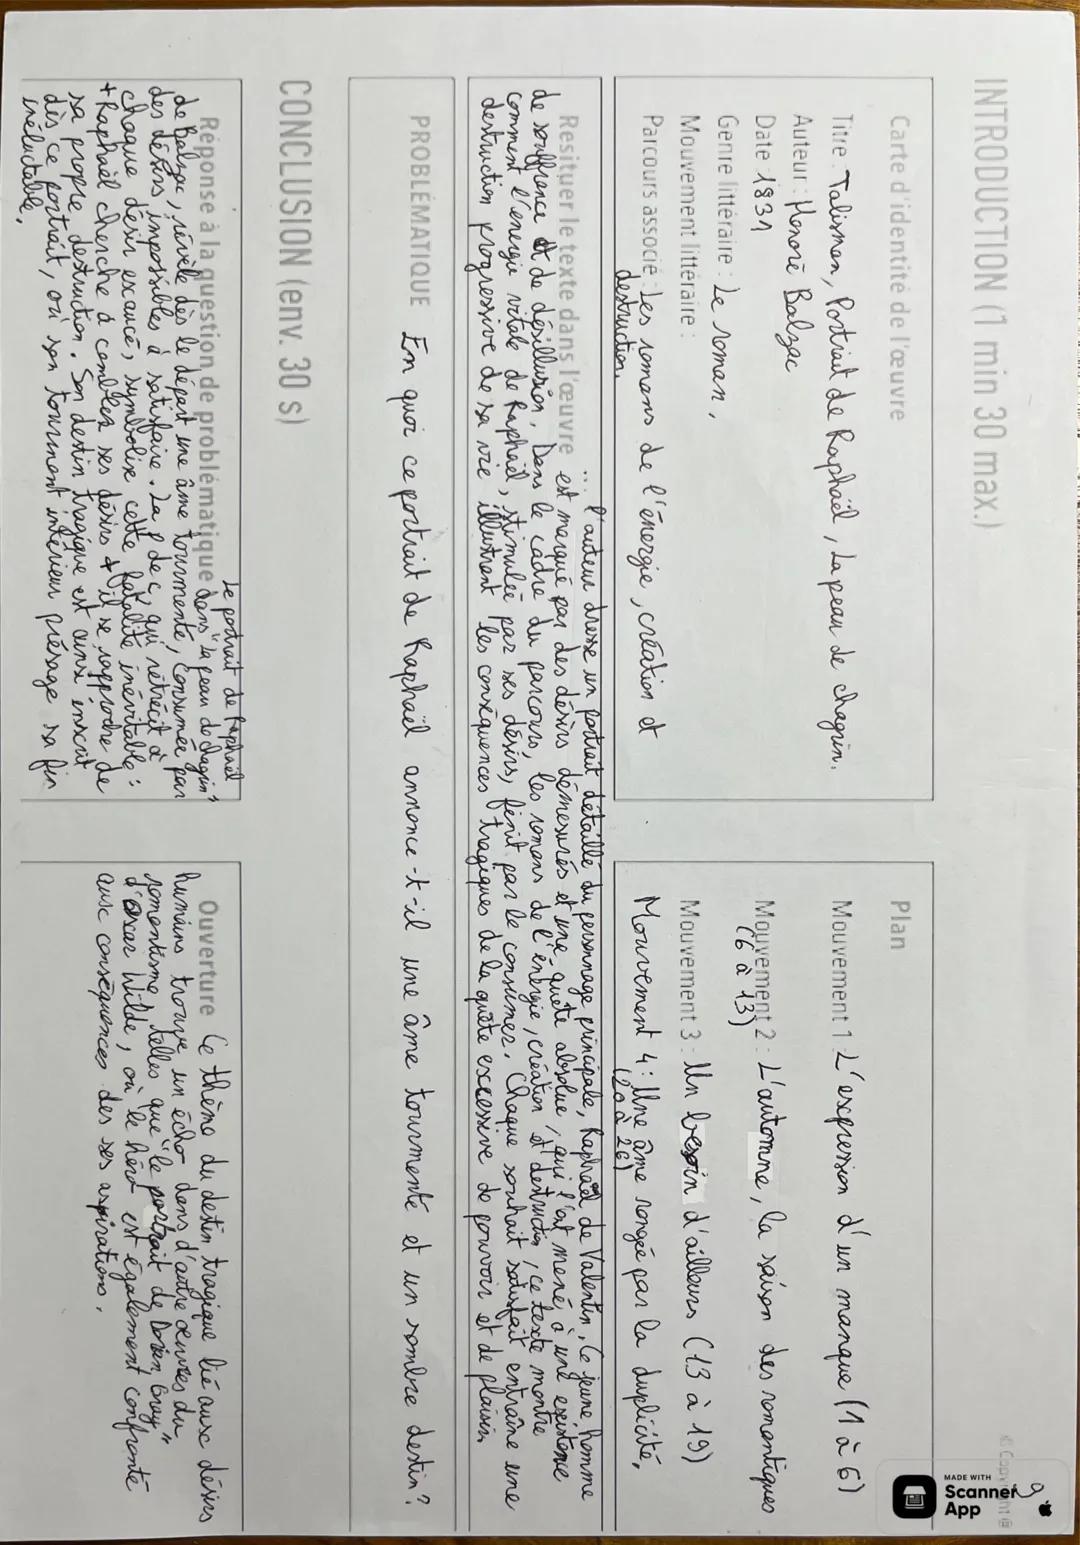 INTRODUCTION (1 min 30 max.)
Carte d'identité de l'œuvre
Titre : Talisman, Portrait de Raphaël, La peau de chagrin.
Auteur : Honoré Balzac
Date 1831
Genre littéraire : Le roman,
Mouvement littéraire :
Parcours associé : Les romans de l'énergie, création et
destruction.
Plan
Mouvement 1 L'expression d'un manque (1 à 6)
Mouvement 2 : L'automne, la saison des romantiques
(6 à 13)
Mouvement 3 : Un besoin d'ailleurs (13 à 19)
Mouvement 4 : Une âme rongée par la duplicité,
(20 à 26)
... l'auteur dresse un portrait détaillé du personnage principale, Raphaël de Valentin. Ce jeune homme
Resituer le texte dans l'œuvre est marqué par des désirs démesurés et une quête absolue, qui l'at mené, à une existence
de souffrance et de désillusion. Dans le cadre du parcours, les romans de l'énergie, création et destruction, ce texte montre
comment l'énergie vitale de Raphaël, stimulée par ses désirs, finit par le consumer. Chaque souhait satisfait entraîne une
destruction progressive de sa vie illustrant les conséquences tragiques de la quête excessive de pouvoir et de plaisir.
PROBLÉMATIQUE En quoi ce portrait de Raphaël annonce-t-il une âme tourmenté et un sombre destin ?
CONCLUSION (env. 30 s)
Le portrait de Raphaël
Réponse à la question de problématique dans "la peau de chagrin"
de Balzac, révèle dès le départ une âme tourmenté, consumée par
des désirs impossibles à satisfaire. La P de C, qui rétrécit à
chaque désir exaucé, symbolise cette fatalité inévitable :
+ Raphaël cherche à combler ses désirs + il se rapproche de
sa propre destruction. Son destin tragique est ainsi inscrit
dès ce portrait, où son tourment intérieur présage sa fin
inéluctable.
Ouverture Ce thème du destin tragique lié aux désirs
humains trouve un écho dans d'autre œuvres du
romantisme, telles que "le portrait de Dorian Gray"
d'oscar Wilde, où le héro est également confronté
aux conséquences des ses aspirations.
9
MADE WITH
Scanner
App